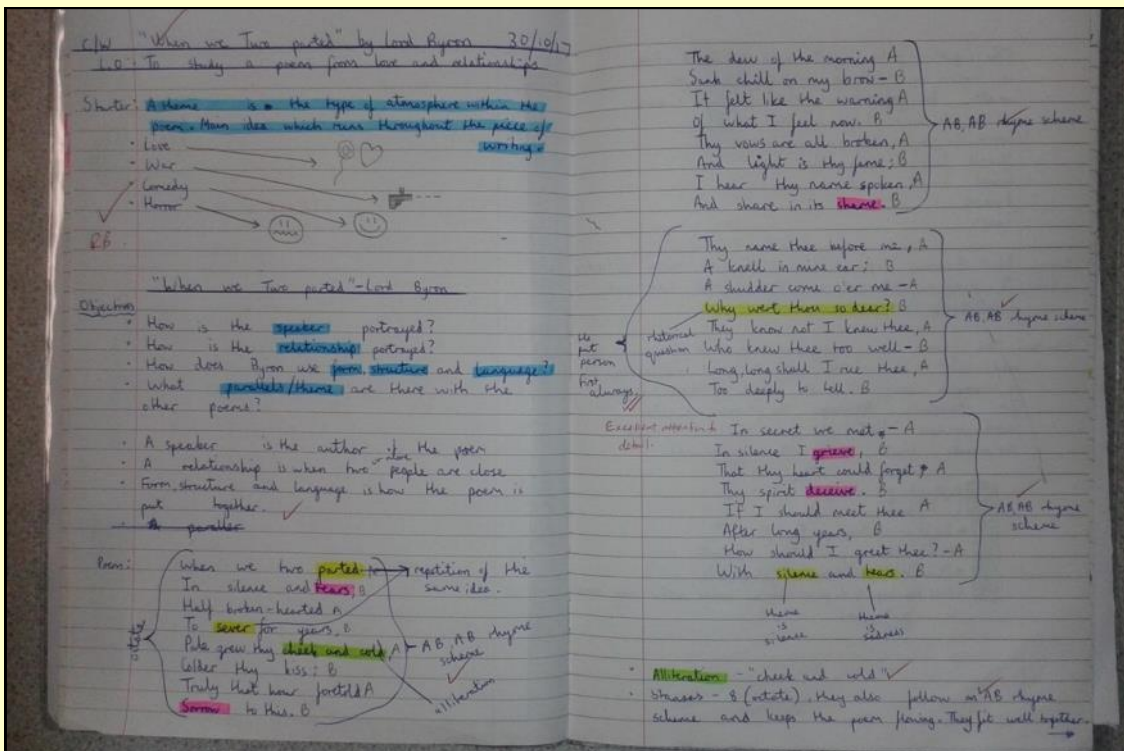 C/W "When we Two parted" by Lord Byron 30/10/17
L.O - To study a poem from love and relationships
Starter: A theme is the type of atomsphere within the
poem. Main idea which runs throughout the piece of
writing.
· Love
· War
· Comedy
· Horror
RB
"When we Two parted" - Lord Byron
Objectives
· How is the speaker portrayed?
· How is the relationship portrayed?
· How does Byron use form, structure and language?
· What parallels/theme are there with the
other poems?
· A speaker is the author of the poem
· A relationship is when two people are close
· Form, structure and language is how the poem is
put together.
Poem:
When we two parted
In silence and tears, B
Half broken-hearted A
To sever for years, B
Pale grew thy cheek and cold, A
Colder thy kiss; B
Truly that hour foretold A
Sorrow to this. B
repetition of the
same idea.
AB, AB rhyme
scheme
alliteration
The dew of the morning A
Sunk chill on my brow - B
It felt like the warning A
Of what I feel now. B
Thy vows are all broken, A
And light is thy fame; B
I hear thy name spoken, A
And share in its shame. B
AB, AB rhyme scheme
Thy name thee before me, A
A knell in mine ear; B
A shudder come o'er me - A
Why wert thou so dear? B
They know not I knew thee, A
Who knew thee too well - B
Long, long shall I rue thee, A
Too deeply to tell. B
rhetorical
question
AB, AB rhyme scheme
put
person
first
always
Excellent attention to
detail.
In secret we met - A
In silence I grieve, B
That thy heart could forget, A
Thy spirit deceive. B
If I should meet thee A
After long years, B
How should I greet thee? - A
With silence and tears. B
AB, AB rhyme
scheme
theme
is
silence
theme
is
sadness
· Alliteration - "cheek and cold"
· Stanzas - 8 (octate). they also follow an AB rhyme
scheme and keeps the poem flowing. They fit well together.